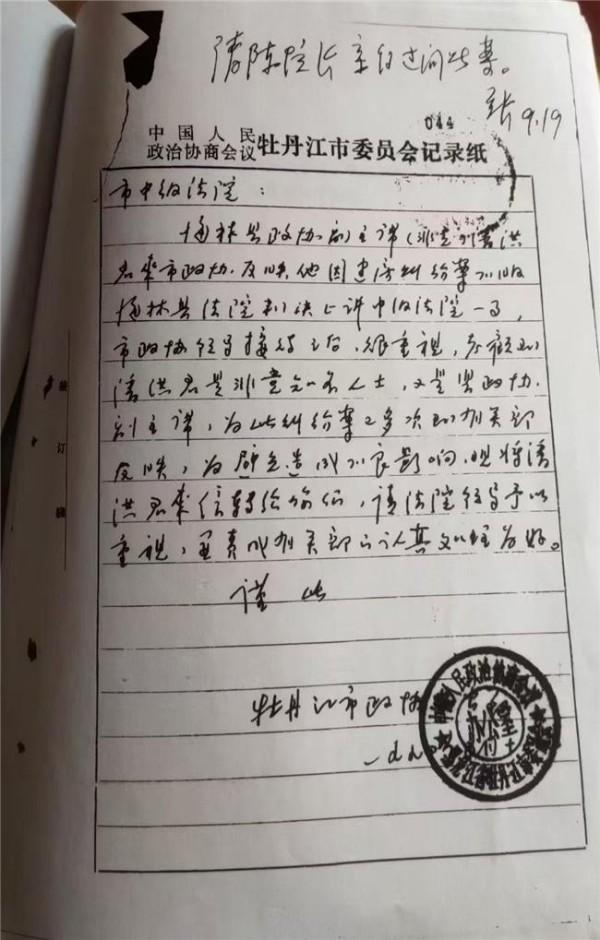 请陈院长亲自过问此案。
张 9.19
044
中国人民
政治协商会议牡丹江市委员会记录纸
市中级法院：
海林县政协副主席（非党）潘洪
君来市政协反映他因建房纠纷案不服
海林县法院判决上诉中级法院一事，
市政协领导接待了后，很重视，
潘洪君是非党知名人士，又是县政协
副主席，为此纠纷案已多次向有关部
反映，为避免造成不良影响，现将潘
洪君来信转给你们，请法院领导予以
重视，并责成有关部门认真处理为好。
谨此
牡丹江市政协
订